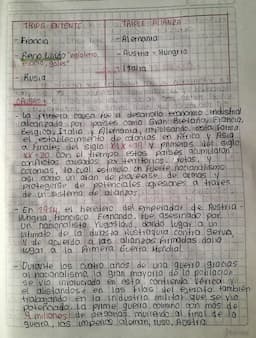 TRIPLE ENTENTE
TRIPLE ALIANZA
- Francia
- Alemania
- Reino Unido
- Austria - Hungria
- Italia
- Rusia
CAUSAS
- La primera causa fue el desarrollo económico industrial
alcanzado por países como Gran Bretaña, Francia,
Belgica, Italia y Alemania, implicando esta forma
el establecimiento de colonias en Africa y Asia
a finales del siglo XIX y primeros del siglo
XX. Con el tiempo estos países acumularon
conflictos causados por territorios, rotos, y
colonias, lo cual estimulo un fuerte nacionalismo
asi como un afan de hacerse de armas y
protegerse de potenciales agresores a través
de un sistema de alianzas.
- En 1914 el heredero del emperador de Austria -
Hungría Francisco Fernando, fue asesinado por
un nacionalista Yugoslavo, dando lugar a un
ultimatum de la duposta Austrohungara contra Servia,
y de acuerdo a las alianzas formadas daria
lugar a la Primera Guerra Mundial.
- Durante los cuatro años de una guerra
al nacionalismo, la gran mayoría de la población
se vio involucrada en esta contienda bélica
el alistandose en las filas del Ejercito también
trabajando en la industria militar que se vio
potenciada. La prime guerra culminó con más de
9 millones de personas muriendo al final de la
guerra, los imperios alemán, ruso, Austro